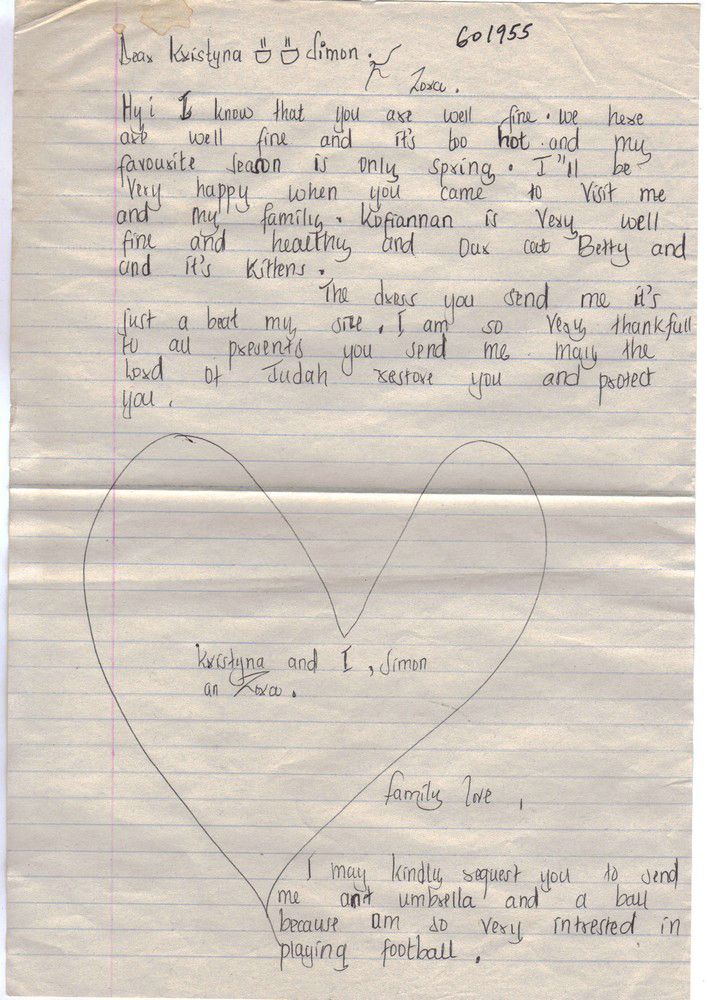 601955
Dear Kristyna Simon.
Zora.
Hyi I know that you are well fine. we here
are well fine and it's too hot and my
favourite season is only spring. I"ll be
Very happy when you came to visit me
and my family. Kofiannan is Very well
fine and healthy and Our cat Betty and
and it's Kittens.
The dress you send me it's
just a beat my size. I am so very thankfull
to all presents you send me may the
Lord of Judah restore you and protect
you.
Kristyna and I, Simon
an Zora.
family love,
I may kindly request you to send
me an umbrella and a ball
because am so very intrested in
playing football.